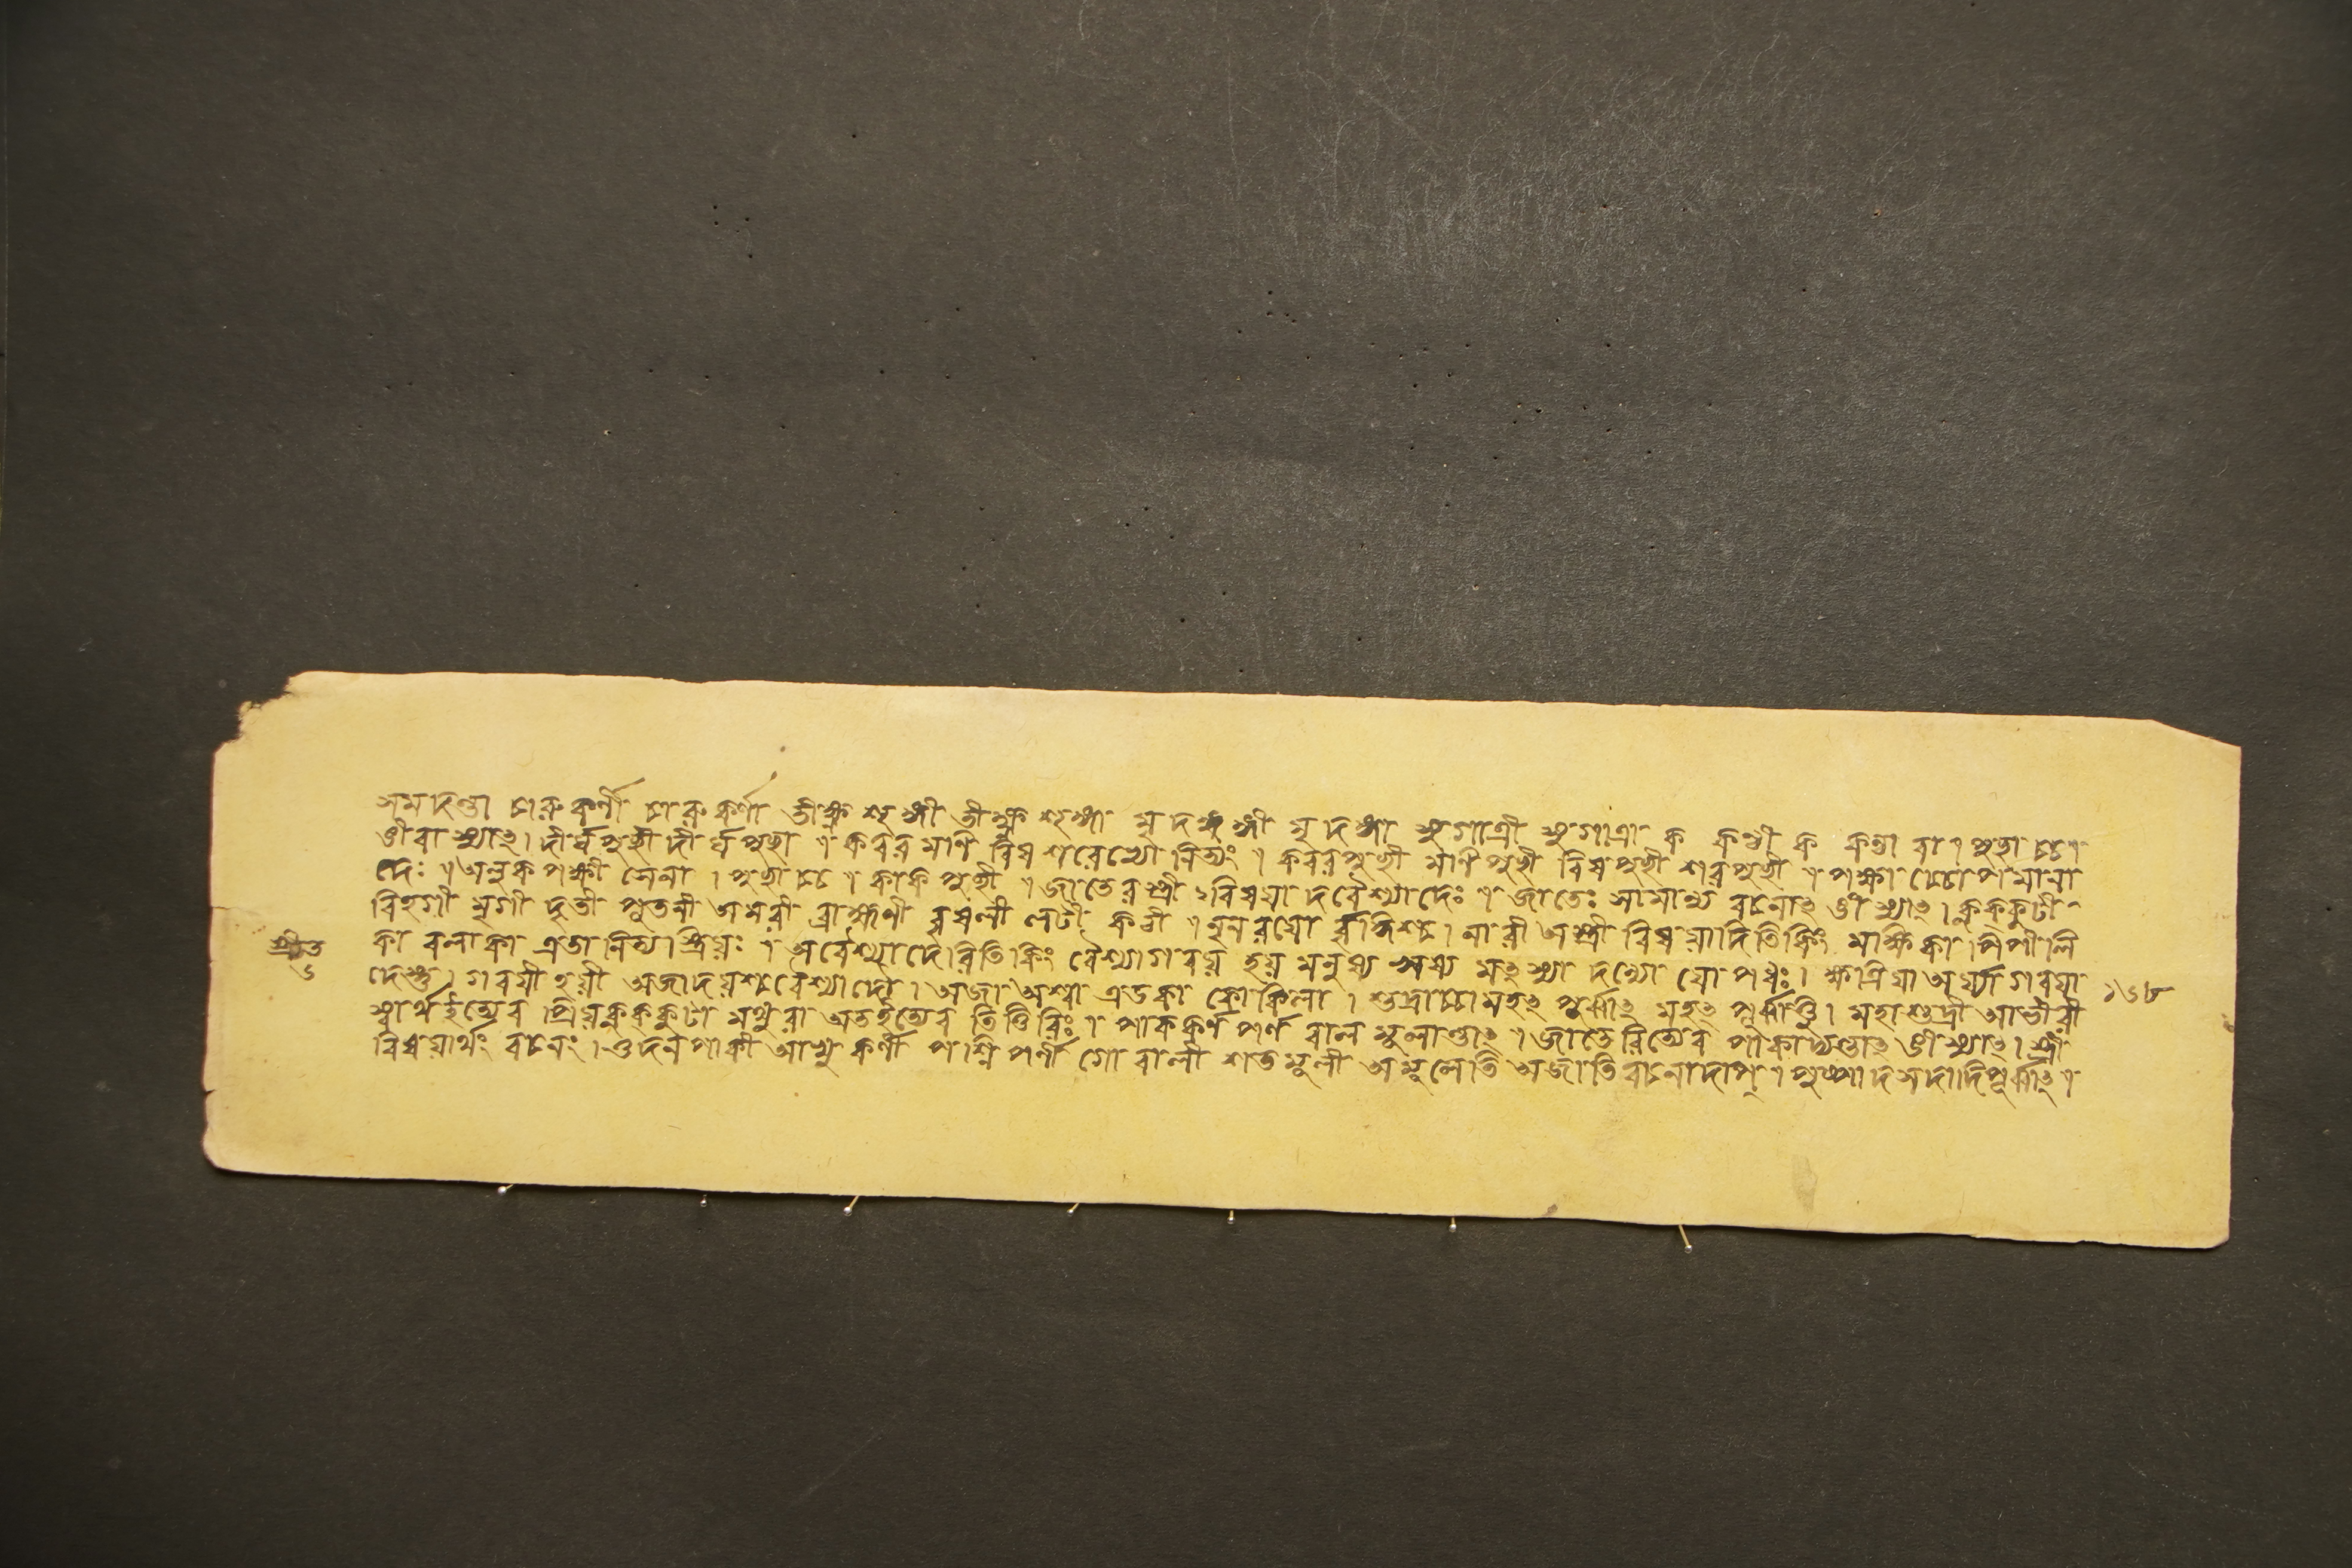 সমদন্তা চারুকর্ণী চারুকর্ণা তীক্ষ্ণশৃঙ্গী তীক্ষ্ণশৃঙ্গা মৃদঙ্গী মৃদঙ্গা সুগাত্রী সুগাত্রা ক কণ্ঠী ক কণ্ঠা বা । পুচ্ছাচ্চ ।
ঙীবা স্যাৎ । দীর্ঘপুচ্ছী দীর্ঘপুচ্ছা । কবরমণিবিষশরেভ্যো নিত্যং ॥ কবরপুচ্ছী মণিপুচ্ছী বিষপুচ্ছী শরপুচ্ছী । পক্ষাচ্চোপমানা
দেঃ ॥ উলুকপক্ষী সেনা । পুচ্ছাচ্চ । কাকপুচ্ছী ॥ জাতেরস্ত্রীবিষয়াদবৈশ্যাদেঃ । জাতেঃ সামান্যবচনাৎ ঙী স্যাৎ । কুক্কুটী
বিহগী মৃগী দূতী পুতনী ভ্রমরী ব্রাহ্মণী বৃষলী নটী কঠী । নৃনরয়ো র্বৃদ্ধিশ্চ । নারী অস্ত্রীবিষয়াদিতি কিং মক্ষিকা পিপীলি
শ্রীত
৬
কা বলাকা এতা নিত্যস্ত্রিয়ঃ । অবৈশ্যাদেরিতি কিং বৈশ্যা গবয় হয় মনুষ্য মৎস্যাদন্যো যোপধঃ । ক্ষত্রিয়া অর্য্যা গবয়া
দেস্তু । গবয়ী হয়ী অজাদয়শ্চ বৈশ্যাদৌ । অজা অশ্বা এডকা কোকিলা । শুদ্রাচ্চামহৎপূর্ব্বাৎ মহৎপূর্ব্বাত্তু । মহাশুদ্রী আভীরী
১৬৮
স্বার্থ ইত্যেব প্রিয়কুক্কুটা মথুরা অত ইত্যেব তিত্তিরিঃ । পাককর্ণপর্ণবালমূলান্তাৎ ॥ জাতেরিত্যেব পাকাদ্যন্তাৎ ঙী স্যাৎ । স্ত্রী
বিষয়ার্থং বচনং । ওদনপাকী আখুকর্ণী পৃশ্নিপর্ণী গোবালী শতমূলী অমূলেতি অজাতিবচনাদাপ্ । পুষ্পাদসদাদিপূর্ব্বাৎ ।